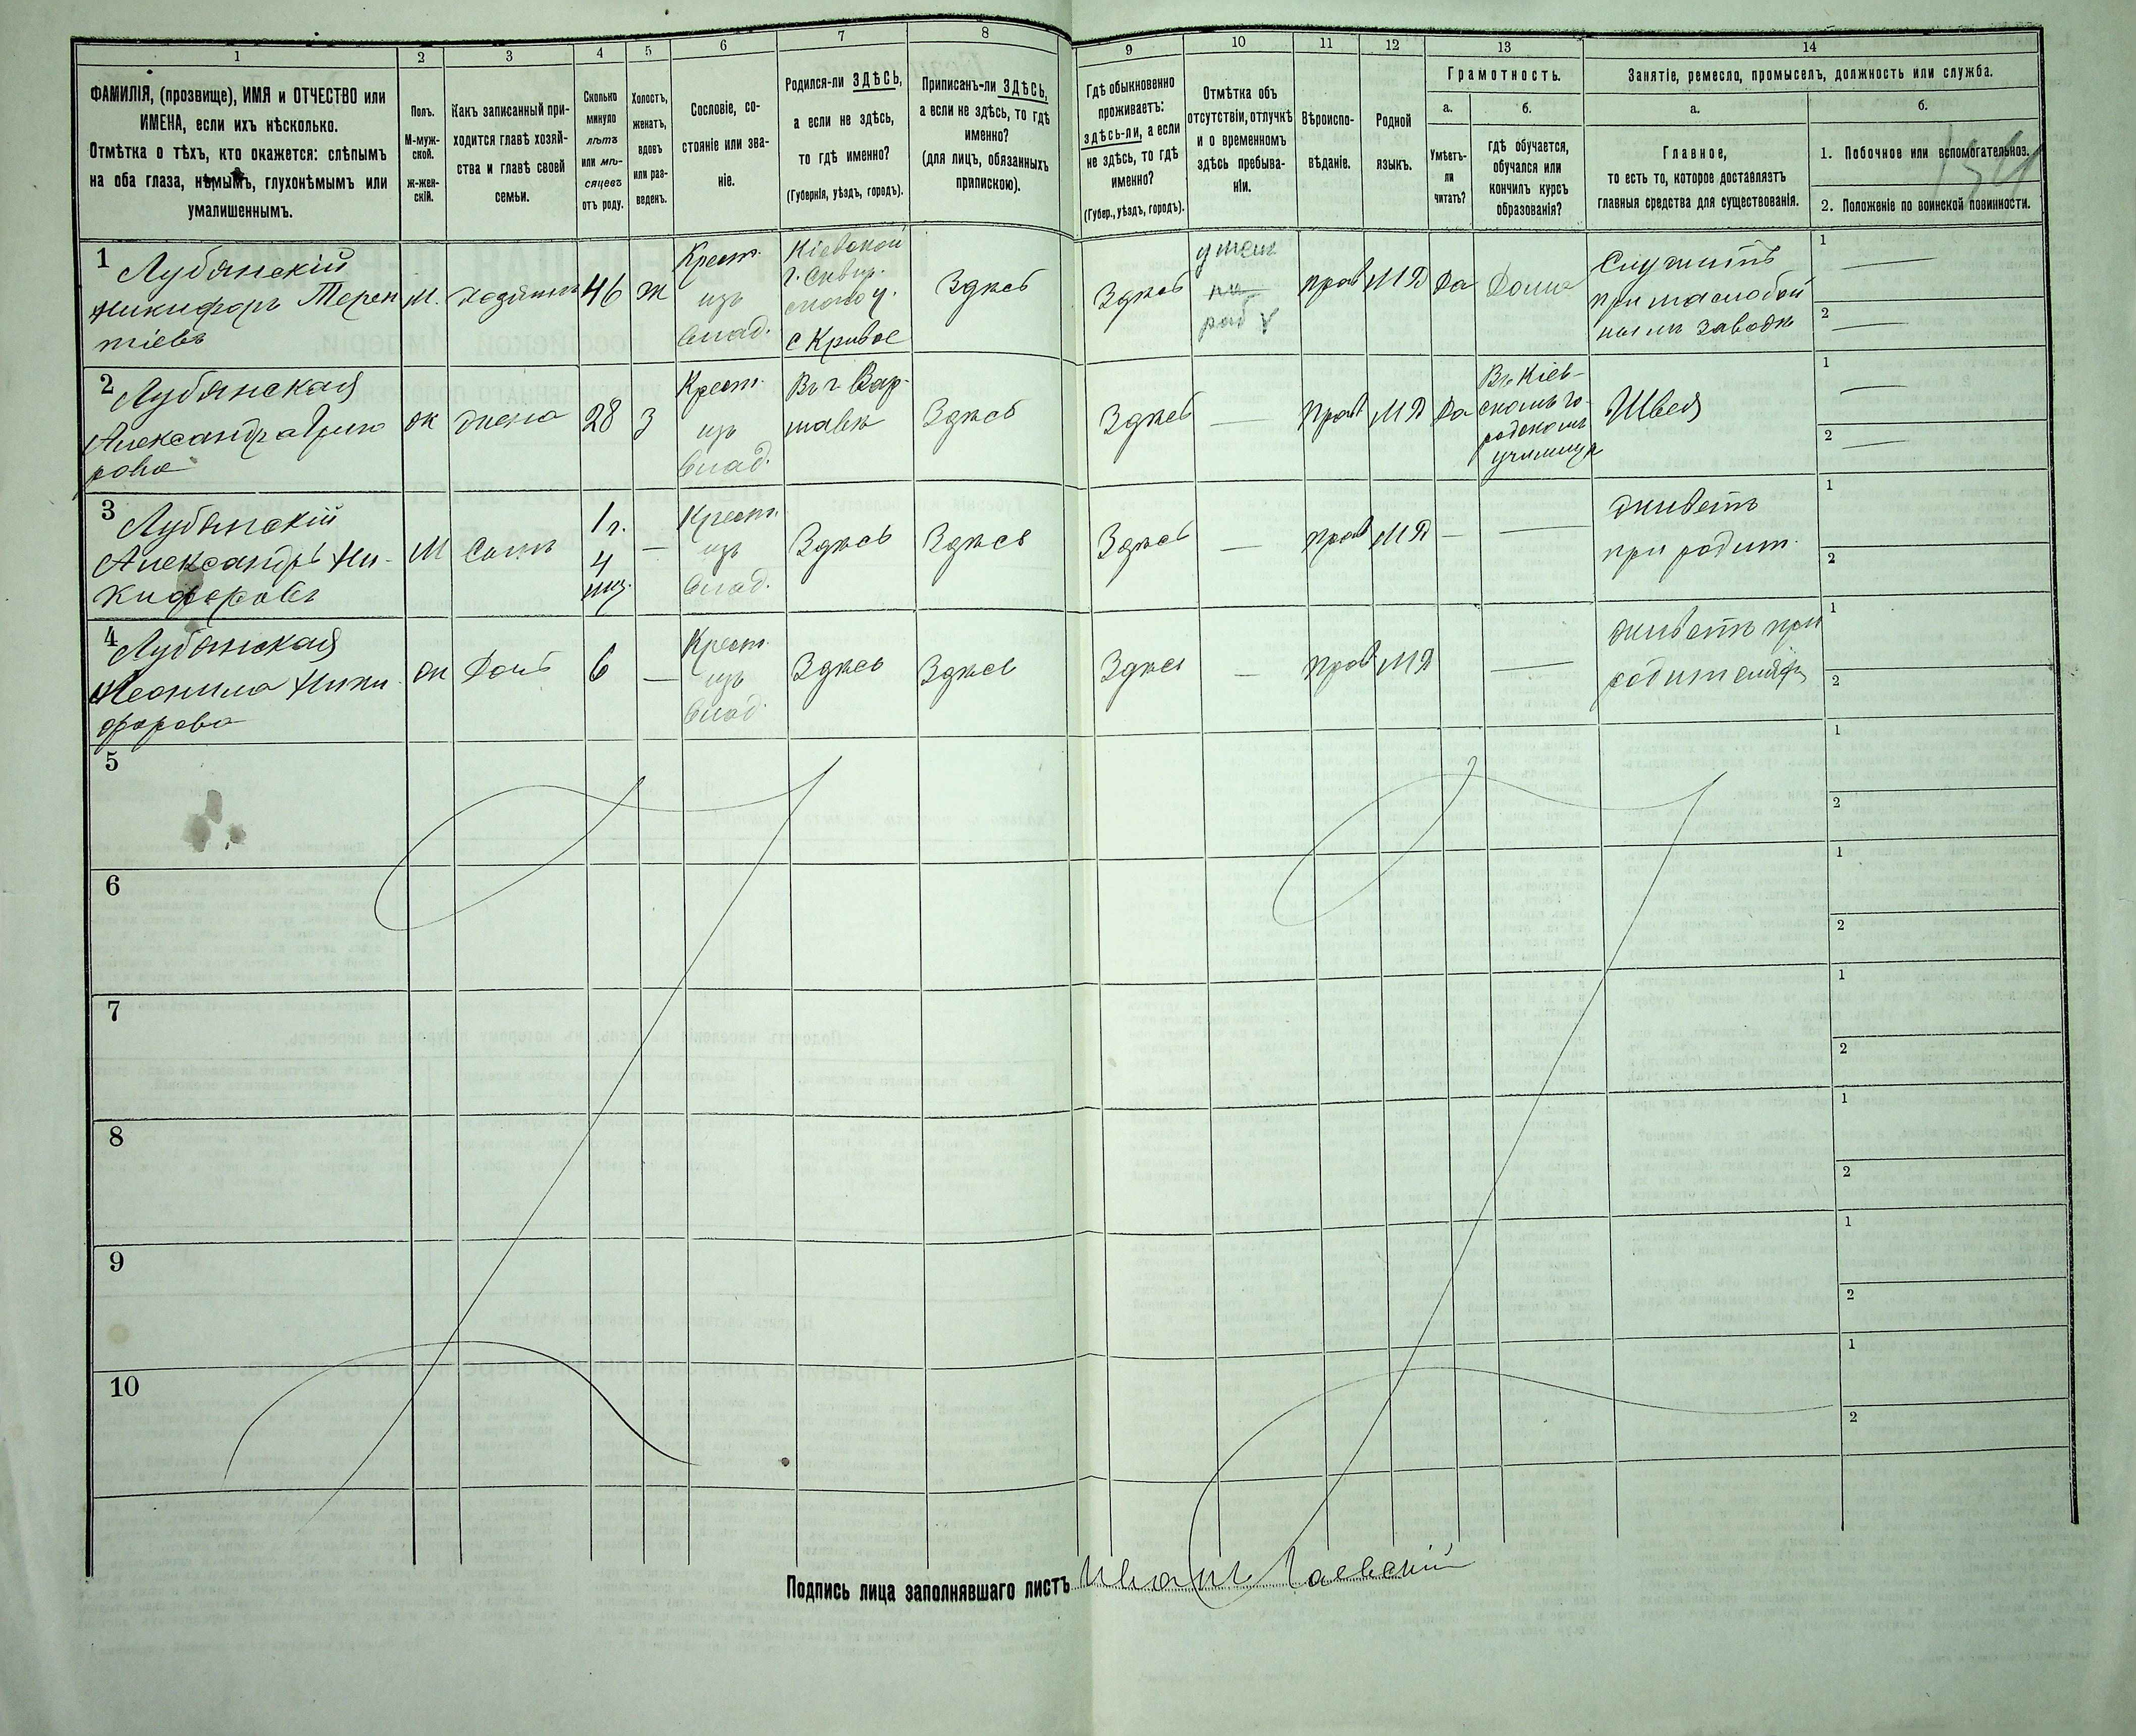 1
ФАМИЛІЯ, (прозвище), ИМЯ и ОТЧЕСТВО или
ИМЕНА, если ихъ нѣсколько.
Отмѣтка о тѣхъ, кто окажется: слѣпымъ
на оба глаза, нѣмымъ, глухонѣмымъ или
умалишеннымъ.
2
Полъ.
М-муж-
ской.
ж-жен-
скій.
3
Какъ записанный при-
ходится главѣ хозяй-
ства и главѣ своей
семьи.
4
Сколько
минуло
лѣтъ
или мѣ-
сяцевъ
отъ роду.
5
Холостъ,
женатъ,
вдовъ
или раз-
веденъ.
6
Сословіе, со-
стояніе или зва-
ніе.
7
Родился-ли ЗДѢСЬ,
а если не здѣсь,
то гдѣ именно?
(Губернія, уѣздъ, городъ).
8
Приписанъ-ли ЗДѢСЬ,
а если не здѣсь, то гдѣ
именно?
(для лицъ, обязанныхъ
припискою).
9
Гдѣ обыкновенно
проживаетъ:
здѣсь-ли, а если
не здѣсь, то гдѣ
именно?
(Губер., уѣздъ, городъ).
10
Отмѣтка объ
отсутствіи, отлучкѣ
и о временномъ
здѣсь пребыва-
ніи.
11
Вѣроиспо-
вѣданіе.
12
Родной
языкъ.
13
Грамотность.
а.
Умѣетъ-
ли
читать?
б.
гдѣ обучается,
обучался или
кончилъ курсъ
образованія?
14
Занятіе, ремесло, промыселъ, должность или служба.
а.
Главное,
то есть то, которое доставляэтъ
главныя средства для существованія.
б.
1. Побочное или вспомогательноз.
2. Положеніе по воинской повинности.
1
Лубянскій
Никифоръ Терен
тіевъ
М.
хозяинъ
46
ж
Крест.
изъ
влад.
Кіевской
г. Сквир.
скаго у.
с Кривое
Здѣсь
Здѣсь
прав
МР
да
Дома
Служитъ
при маслобой
номъ заводѣ
1
2
2
Лубянская
Александра Григо
рова
ж
жена
28
з
Крест.
изъ
влад.
Въ г Вар-
шавѣ
Здѣсь
Здѣсь
Прав
МР
да
Въ Кіев-
скомъ го-
родскомъ
училищѣ
Швея
1
2
3
Лубянскій
Александръ Ни-
кифоровъ
М
Сынъ
1 г.
4
мц.
Крест.
изъ
влад.
Здѣсь
Здѣсь
Здѣсь
прав
МР
живетъ
при родит.
1
2
4
Лубянская
Неонила Ники
форова
ж
Дочь
6
Крест.
изъ
влад.
Здѣсь
Здѣсь
Здѣсь
прав
МР
живетъ при
родителяхъ
1
2
5
1
2
6
1
2
7
1
2
8
1
2
9
1
2
10
1
2
Подпись лица заполнявшаго листъ Иванъ Гаевскій